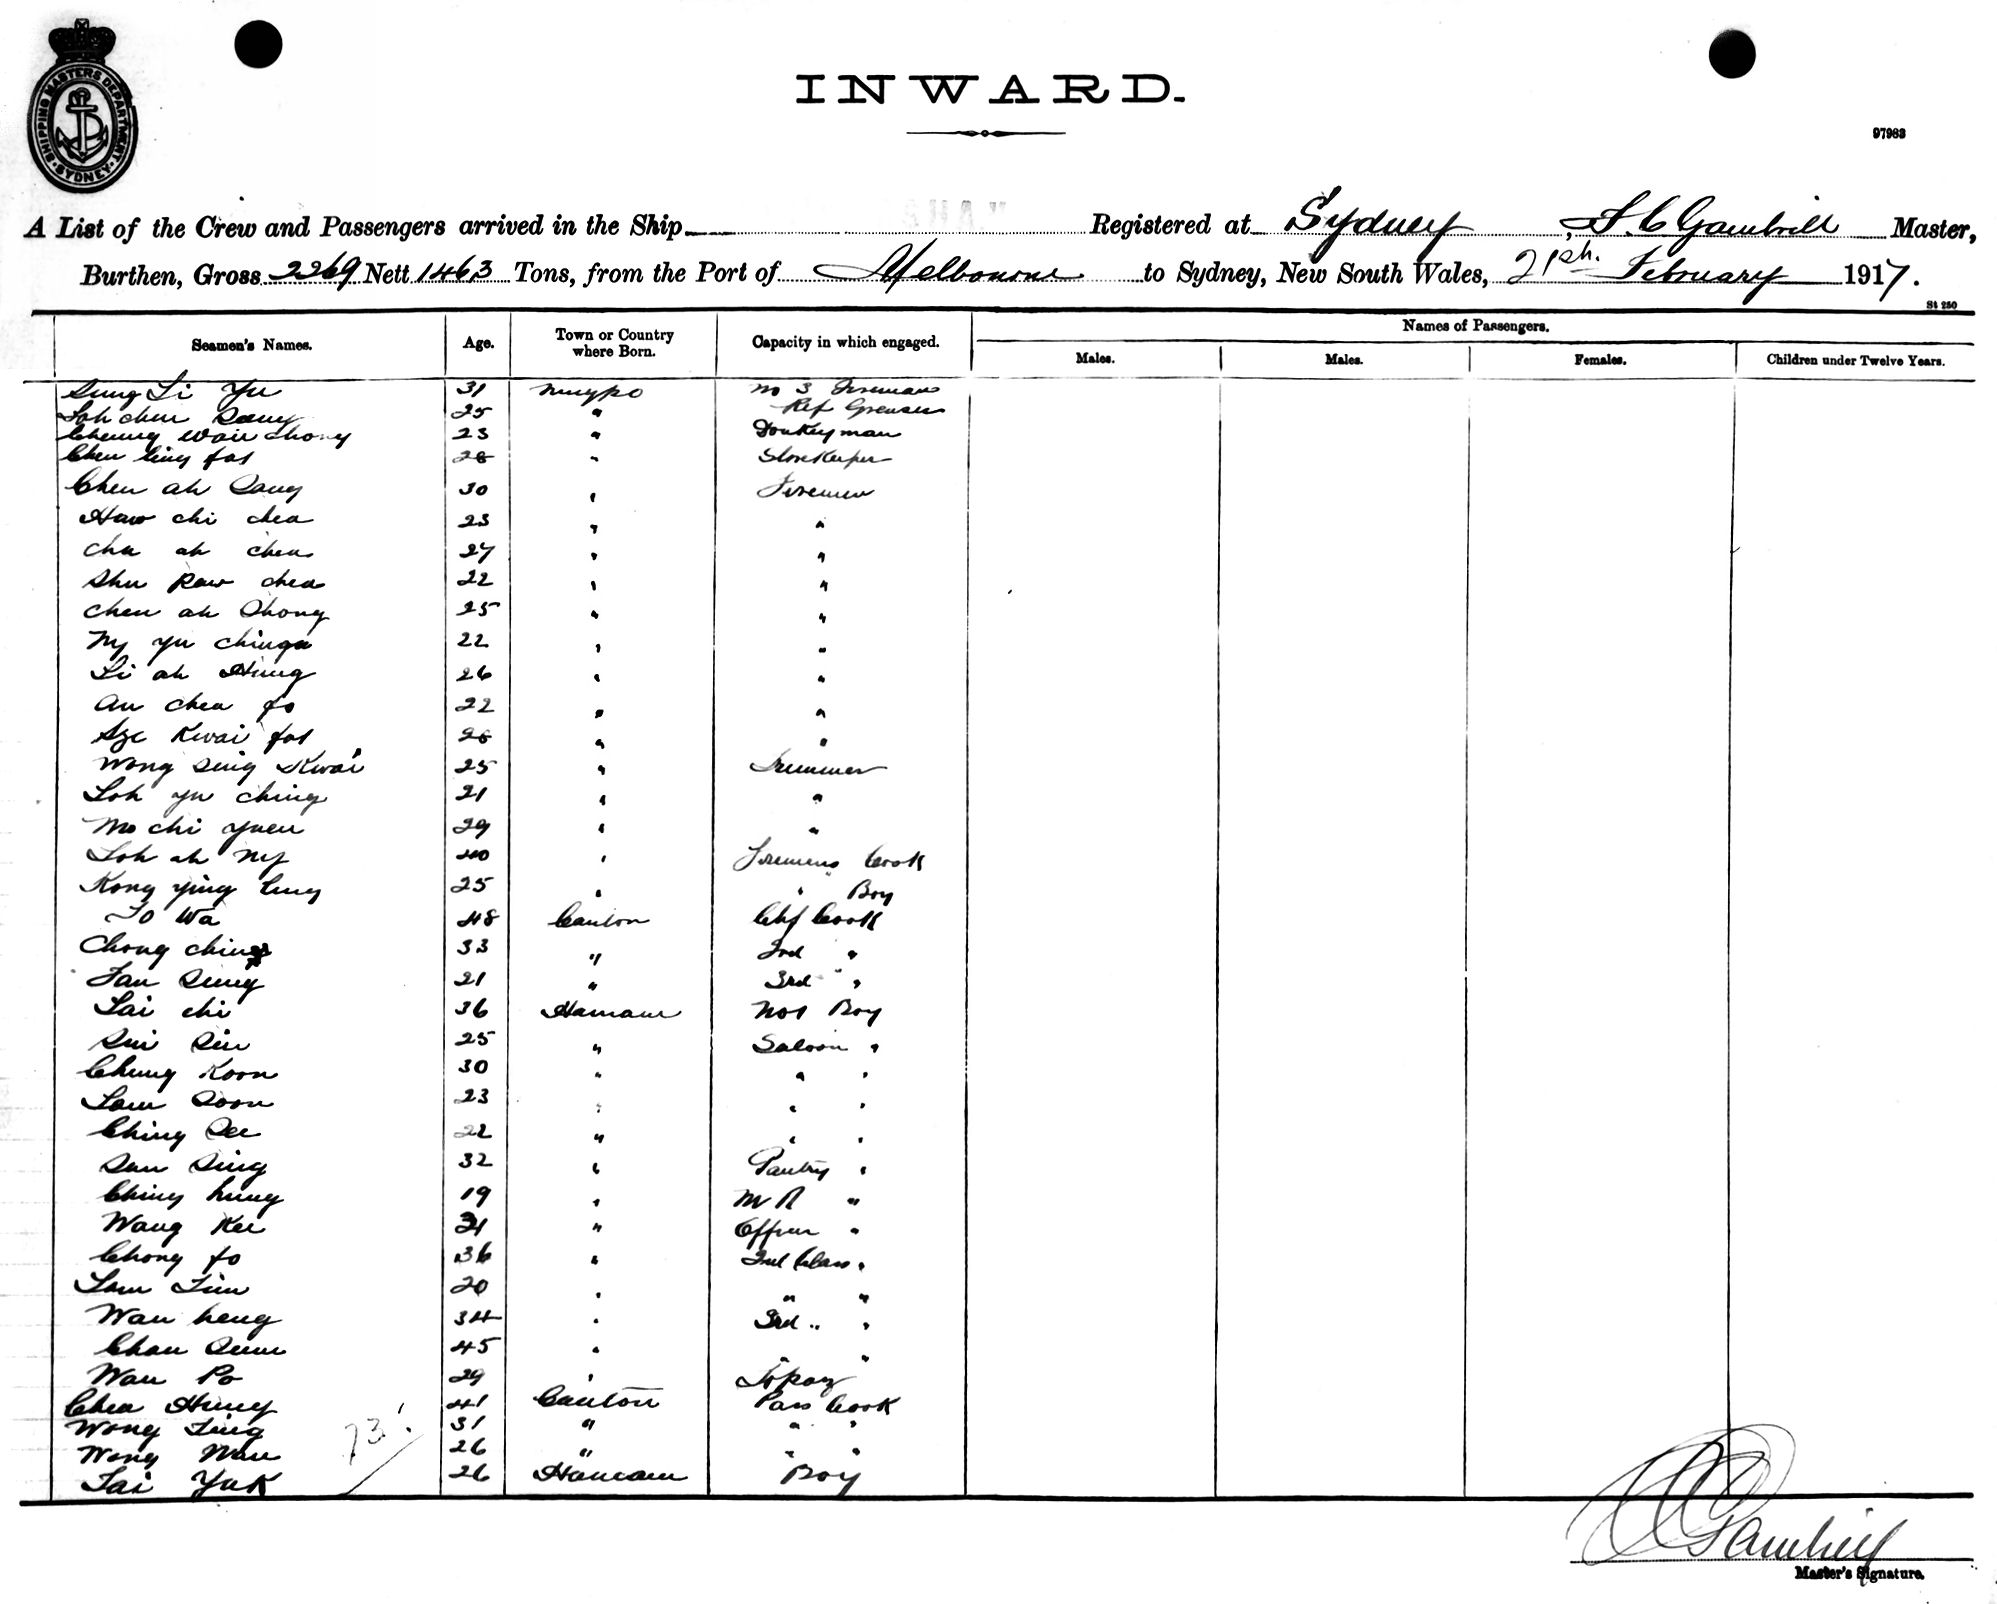 SHIPPING MASTERS DEPARTMENT · SYDNEY ·
INWARD.
97963
A List of the Crew and Passengers arrived in the Ship Registered at Sydney, Gambrill Master,
Burthen, Gross 2269 Nett 1463 Tons, from the Port of Melbourne to Sydney, New South Wales, 21st February 1917.
St 250
Seamen's Names. Age. Town or Country where Born. Capacity in which engaged. Names of Passengers.
Males. Males. Females. Children under Twelve Years.
Sung Li Yu 31 Ningpo No 3 Fireman
Loh chen Sang 25 " Ref Greaser
Cheung Wan Shong 23 " Donkeyman
Chen Ging fat 28 " Storekeeper
Chen ah Sang 30 " Firemen
Haw chi chea 23 " "
Chu ah chen 27 " "
Shu Paw chea 22 " "
Chen ah Shong 25 " "
Ny yu chinga 22 " "
Li ah Hung 26 " "
Au chea fo 22 " "
Sze Kwai fat 28 " "
Wong Sing Kwai 25 " Trimmer
Loh yu ching 21 " "
Mo chi yuen 29 " "
Loh ah Ny 40 " Firemens Cook
Kong ying 25 " " Boy
To Wa 48 Canton Chf Cook
Chong ching 33 " 2nd "
Fan Sung 21 " 3rd "
Lai chi 36 Hainam No1 Boy
Sui Sin 25 " Saloon "
Chung Koon 30 " " "
Lam Soon 23 " " "
Ching See 22 " " "
San Sing 32 " Pantry "
Ching hung 19 " M R "
Wang Kee 21 " Officers "
Chong fo 36 " 2nd Class "
Lam Tim 20 " " "
Wan heng 34 " 3rd " "
Chan Sum 45 " " "
Wan Po 29 " Topaz
Chea Hung 41 Canton Pass Cook
Wong Ting 31 " " "
Wong Wan 26 " " "
Tai Yuk 26 Hainam Boy
73
Gambrill
Master's Signature.